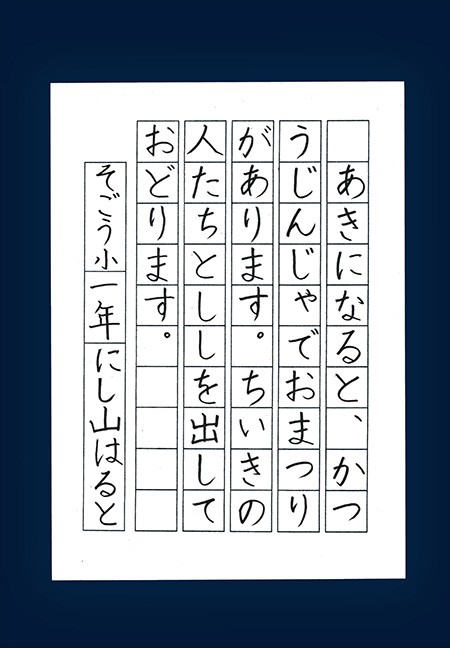 あきになると、かつ
うじんじゃでおまつり
があります。ちいきの
人たちとししを出して
おどります。
そごう小一年にし山はると